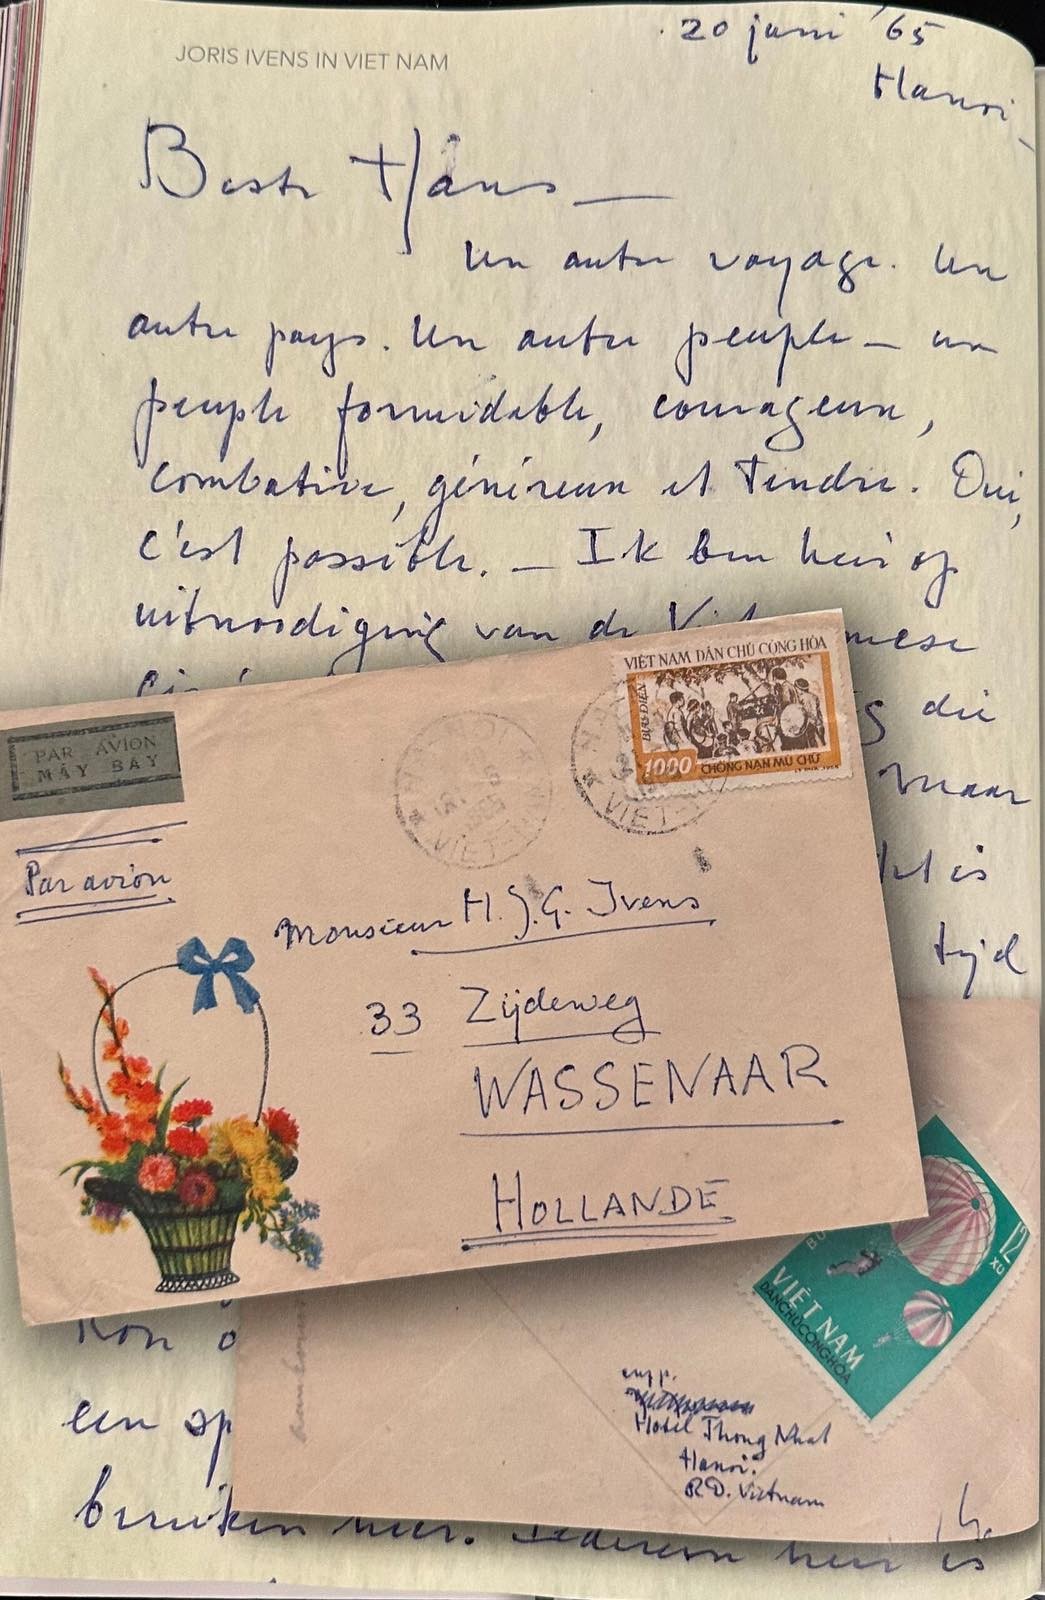 JORIS IVENS IN VIET NAM
20 juni '65
Hanoi
Beste Hans
Un autre voyage. Un
autre pays. Un autre peuple – un
peuple formidable, courageux,
combative, généreux et tendre. Oui,
c'est possible. – Ik ben hier op
uitnoodiging van de
die
maar
is
tijd
PAR AVION
MÁY BAY
Par avion
VIỆT NAM DÂN CHỦ CỘNG HÒA
BƯU ĐIỆN
1000 CHỐNG NẠN MÙ CHỮ
VIET-
VIET-
Monsieur H. J. G. Ivens
33 Zijdeweg
WASSENAAR
HOLLANDE
12 XU
VIỆT NAM
DÂN CHỦ CỘNG HÒA
exp.
Hotel Thong Nhat
Hanoi.
R.D. Vietnam
een
hier. Iedereen hier is